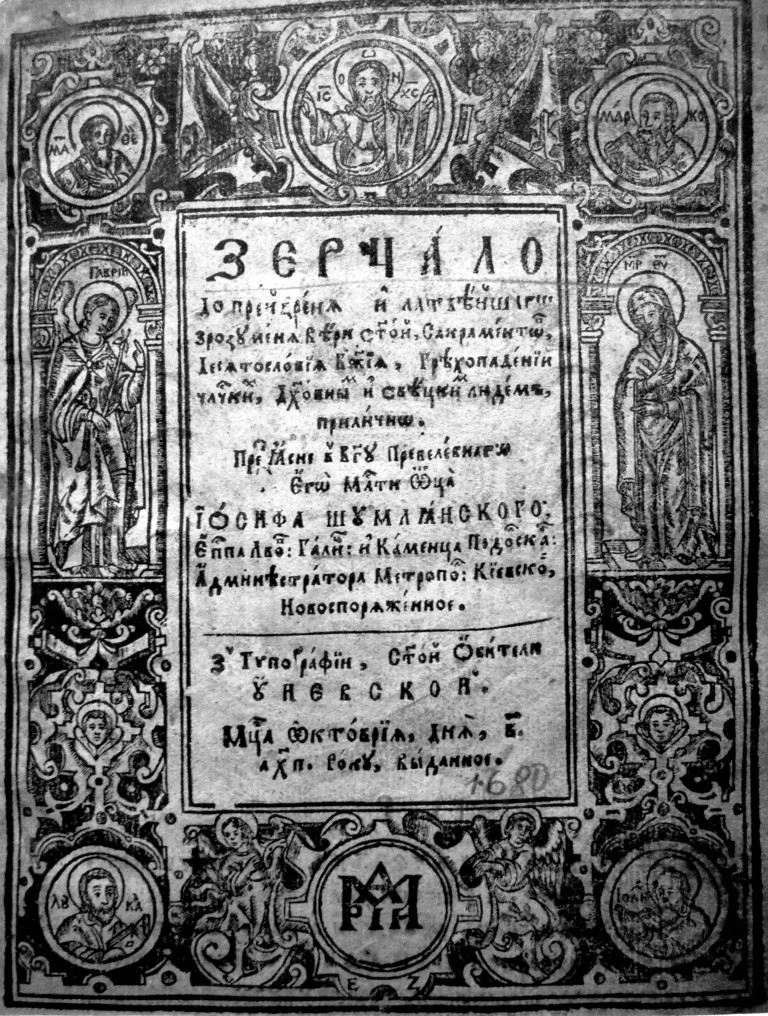 О Н
ІС ХС
МАТ ѲЕ
МАР КО
ГАВРІИ
МР ѲУ
ЗЕРЧА́ЛО
До прейзре́ня и҆ латвѣ́йшагѡ
зрозумѣня Вѣри Ст҃ой, Сакраментѡ́,
Десятословїя Бж҃їя, Грѣхопаденїи
чл҃чки, Дх҃о́вны и҆ свѣцки людемъ,
прили́чнѡ.
Пре Ꙗсне в Бг҃у Превеле́бнагѡ
Е҆гѡ̀ Мл҃ти Ѿц҃а̀
І҆О́СИФА ШУМЛѦ́НСКОГО:
Е҆п҃па Лво: Га́ли: и҆ Ка́менца Подоска:
А҆дминѣстра́тора Метропо: Кїевско́,
Новоспоряже́нное.
З Типогра́фїи, Ст҃ой Ѻ҆би́тели
Ѹ҆НЕВСКОИ.
Мц҃а Ѡ҆кто́врїя, дня̀, в҃.
а҂х҃п. Року, вы́данное.
1680
ЛѸ КА̀
ІѠАН
МАРІѦ
Е Z